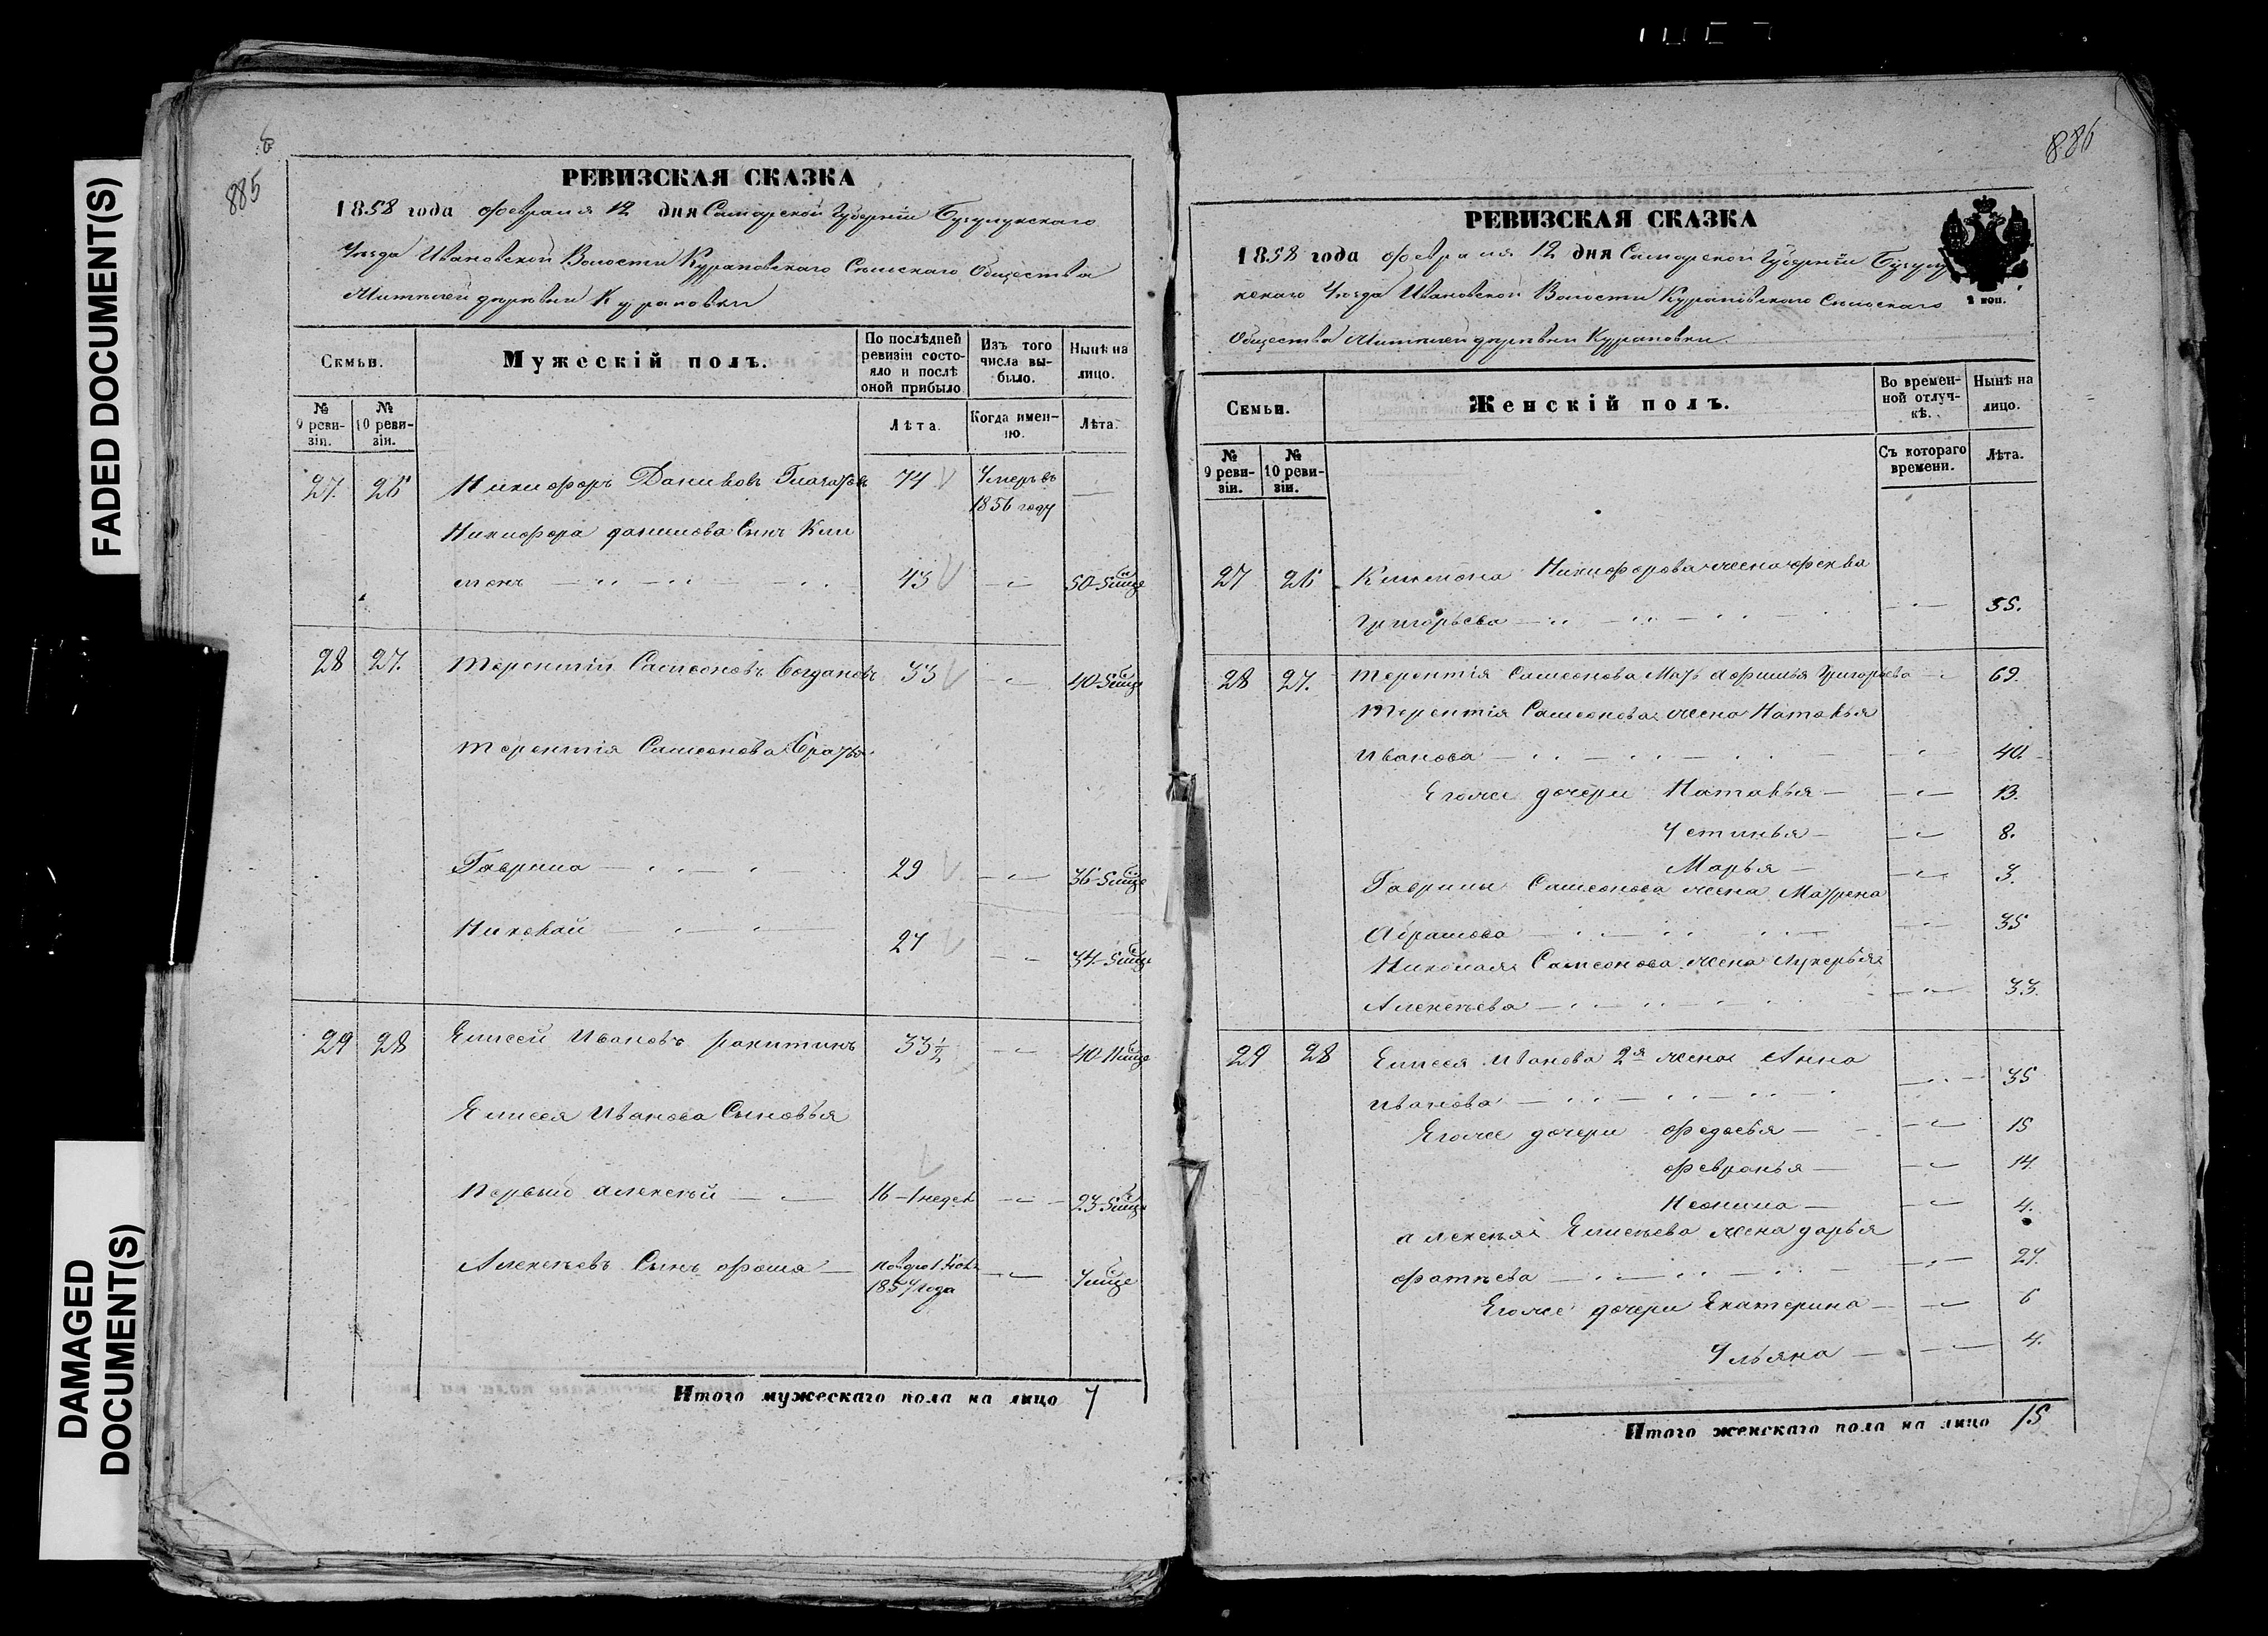 FADED DOCUMENT(S)
DAMAGED
DOCUMENT(S)
885
РЕВИЗСКАЯ СКАЗКА
1858 года февраля 12 дня Самарской Губерніи Бугурукскаго
Уѣзда Ивановской Волости Курановскаго Сельскаго Общества
деревни Курановки
Семьи.
Мужескій полъ.
По послѣдней ревизіи состояло и послѣ оной прибыло
Изъ того числа выбыло.
Нынѣ на лицо.
№ 9 ревизіи.
№ 10 ревизіи.
Лѣта.
Когда именно.
Лѣта.
27 26 Никифоръ Даниловъ 74 Умеръ въ 1856 году —
Никифора данилова Сынъ Кли
монъ 43 50
28 27. Терентій Самсоновъ Богдановъ 33 40
Терентія Самсонова братья
Гаврила 29 36
Николай 27 34
29 28 Елисей Ивановъ ракитинъ 33½ 40
Елисея Иванова Сыновья
Первый алексѣй 16 – 1 недел 23
Алексѣевъ Сынъ фома 1857 года
Итого мужескаго пола на лицо 7
886
РЕВИЗСКАЯ СКАЗКА
1858 года февраля 12 дня Самарской Губерніи Бугуру
кскаго Уѣзда Ивановской Волости Курановскаго Сельскаго
Общества деревни Курановки
2 коп.
Семьи.
Женскій полъ.
Во временной отлучкѣ.
Нынѣ на лицо.
№ 9 ревизіи.
№ 10 ревизіи.
Съ котораго времени.
Лѣта.
27 26 Климона Никифорова жена фекла
Григорьева 55.
28 27. Терентія Самсонова Мать Афимья Григорьева 69.
Терентія Самсонова жена Наталья
Иванова 40.
Егоже дочери Наталья 13.
Устинья 8.
Марья 3.
Гаврилы Самсонова жена Матрена
Абрамова 35
Николая Самсонова жена Лукерья
Алексѣева 33.
29 28 Елисея Иванова 2я жена Анна
Иванова 35
Егоже дочери федосья 15
февронья 14.
Неонила 4.
алексѣя Елисѣева жена дарья
фатѣева 27.
Егоже дочери Екатерина 6
Ульяна 4.
Итого женскаго пола на лицо 15